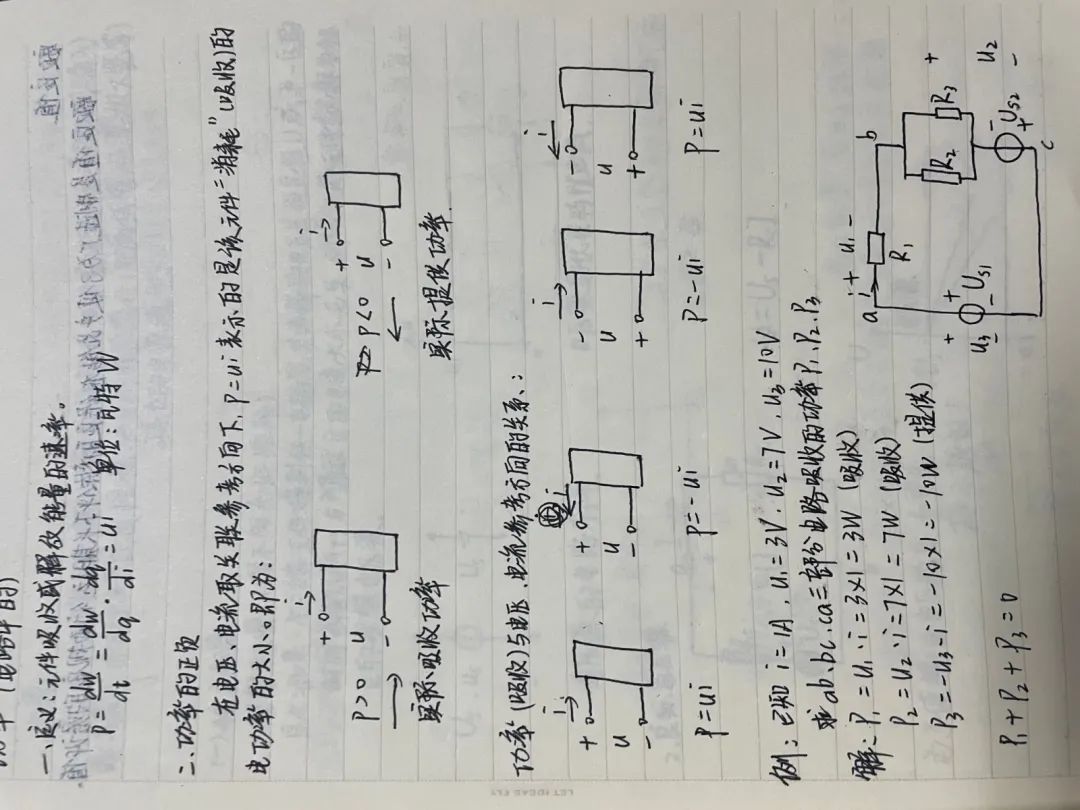 功率 (电路中的)
一、定义：元件吸收或解放能量的速率。
P = dw/dt = dw/dq · dq/di = ui 单位：瓦特 W
二、功率的正负
在电压、电流取关联参考方向下，P=ui 表示的是该元件"消耗"(吸收)的
电功率的大小。即为：
i + u - P>0 →
实际吸收功率
i + u - P<0 ←
实际提供功率
功率(吸收)与电压、电流参考方向的关系：
i + u - P=ui
i + u - P=-ui
i - u + P=-ui
i - u + P=ui
例：已知 i=1A，u₁=3V，u₂=7V，u₃=10V
求 ab、bc、ca 三部分电路吸收的功率 P₁、P₂、P₃
解：P₁=u₁·i=3×1=3W (吸收)
P₂=u₂·i=7×1=7W (吸收)
P₃=-u₃·i=-10×1=-10W (提供)
P₁+P₂+P₃=0
a i + u₁ - b
R₁
R₂ R₃ +
+ u₃ - + US1 -
- US2 + u₂ -
c
LET IDEAS FLY